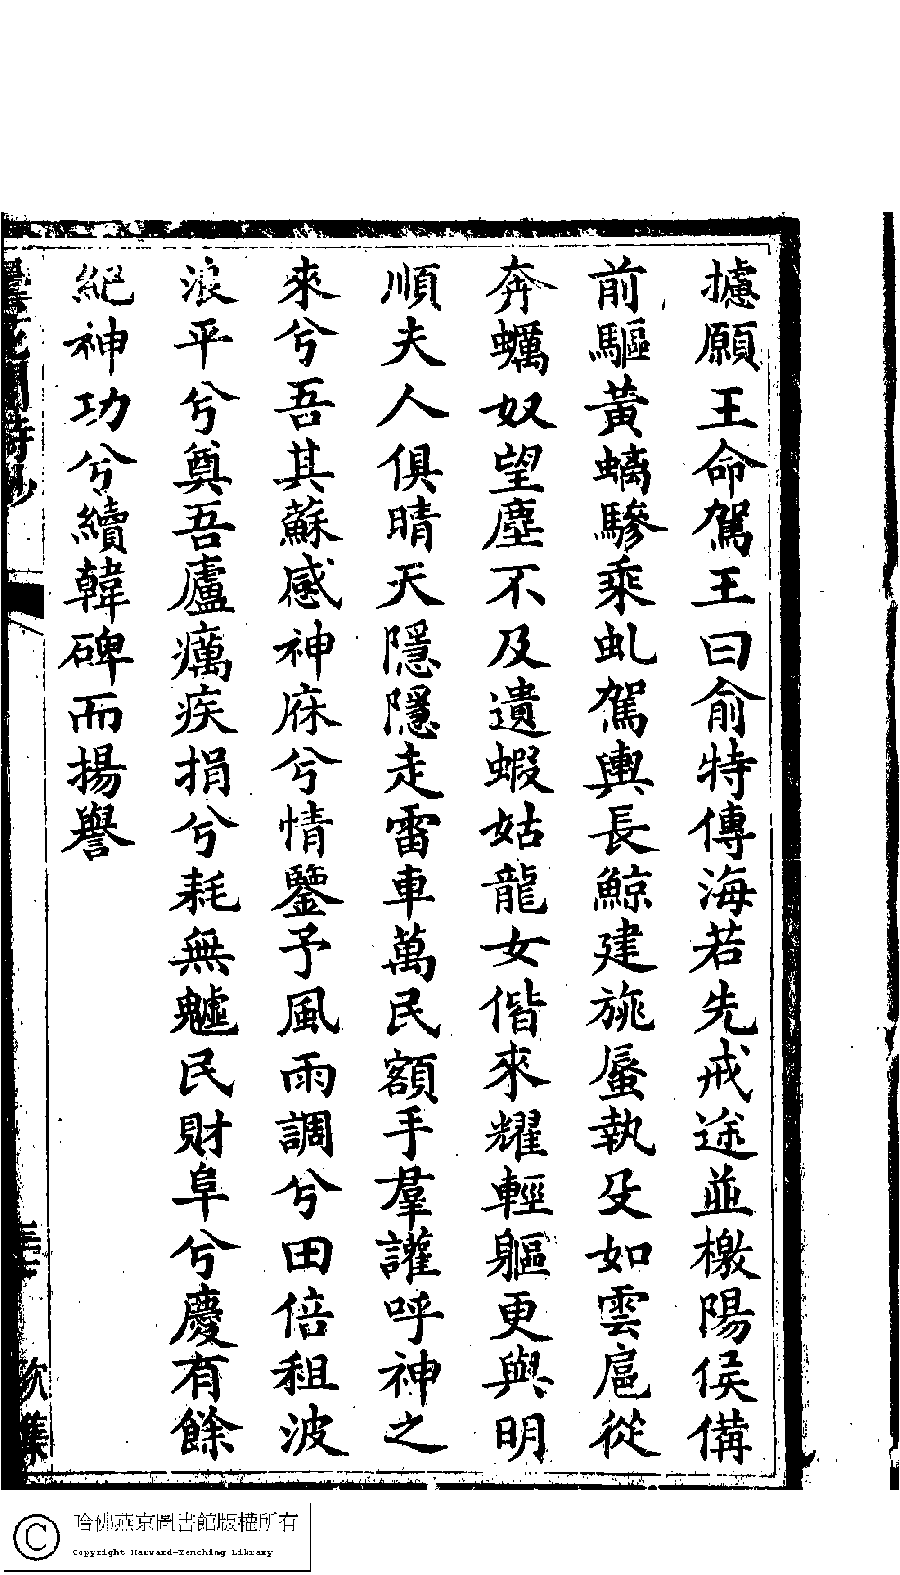 攄願王命駕王曰俞特傳海若先戒途並檄陽侯備
前驅黃螭驂乘虬駕輿長鯨建旐蜃執殳如雲扈從
奔蠣奴望塵不及遺蝦姑龍女偕來耀輕軀更與明
順夫人俱晴天隱隱走雷車萬民額手羣讙呼神之
來兮吾其蘇感神庥兮情鑒予風雨調兮田倍租波
浪平兮奠吾廬癘疾捐兮耗無魖民財阜兮慶有餘
絕神功兮續韓碑而揚譽
花間詩
欠集
哈佛燕京圖書館版權所有
Copyright Harvard-Yenching Library